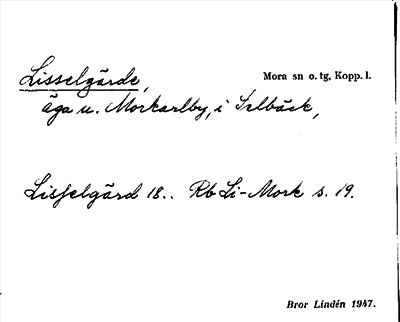 Lisselgärde, Mora sn o. tg, Kopp. l.
äga u. Morkarlby, i Selbäck,
Lisselgärd 18.. Rb Li-Mork s. 19.
Bror Lindén 1947.